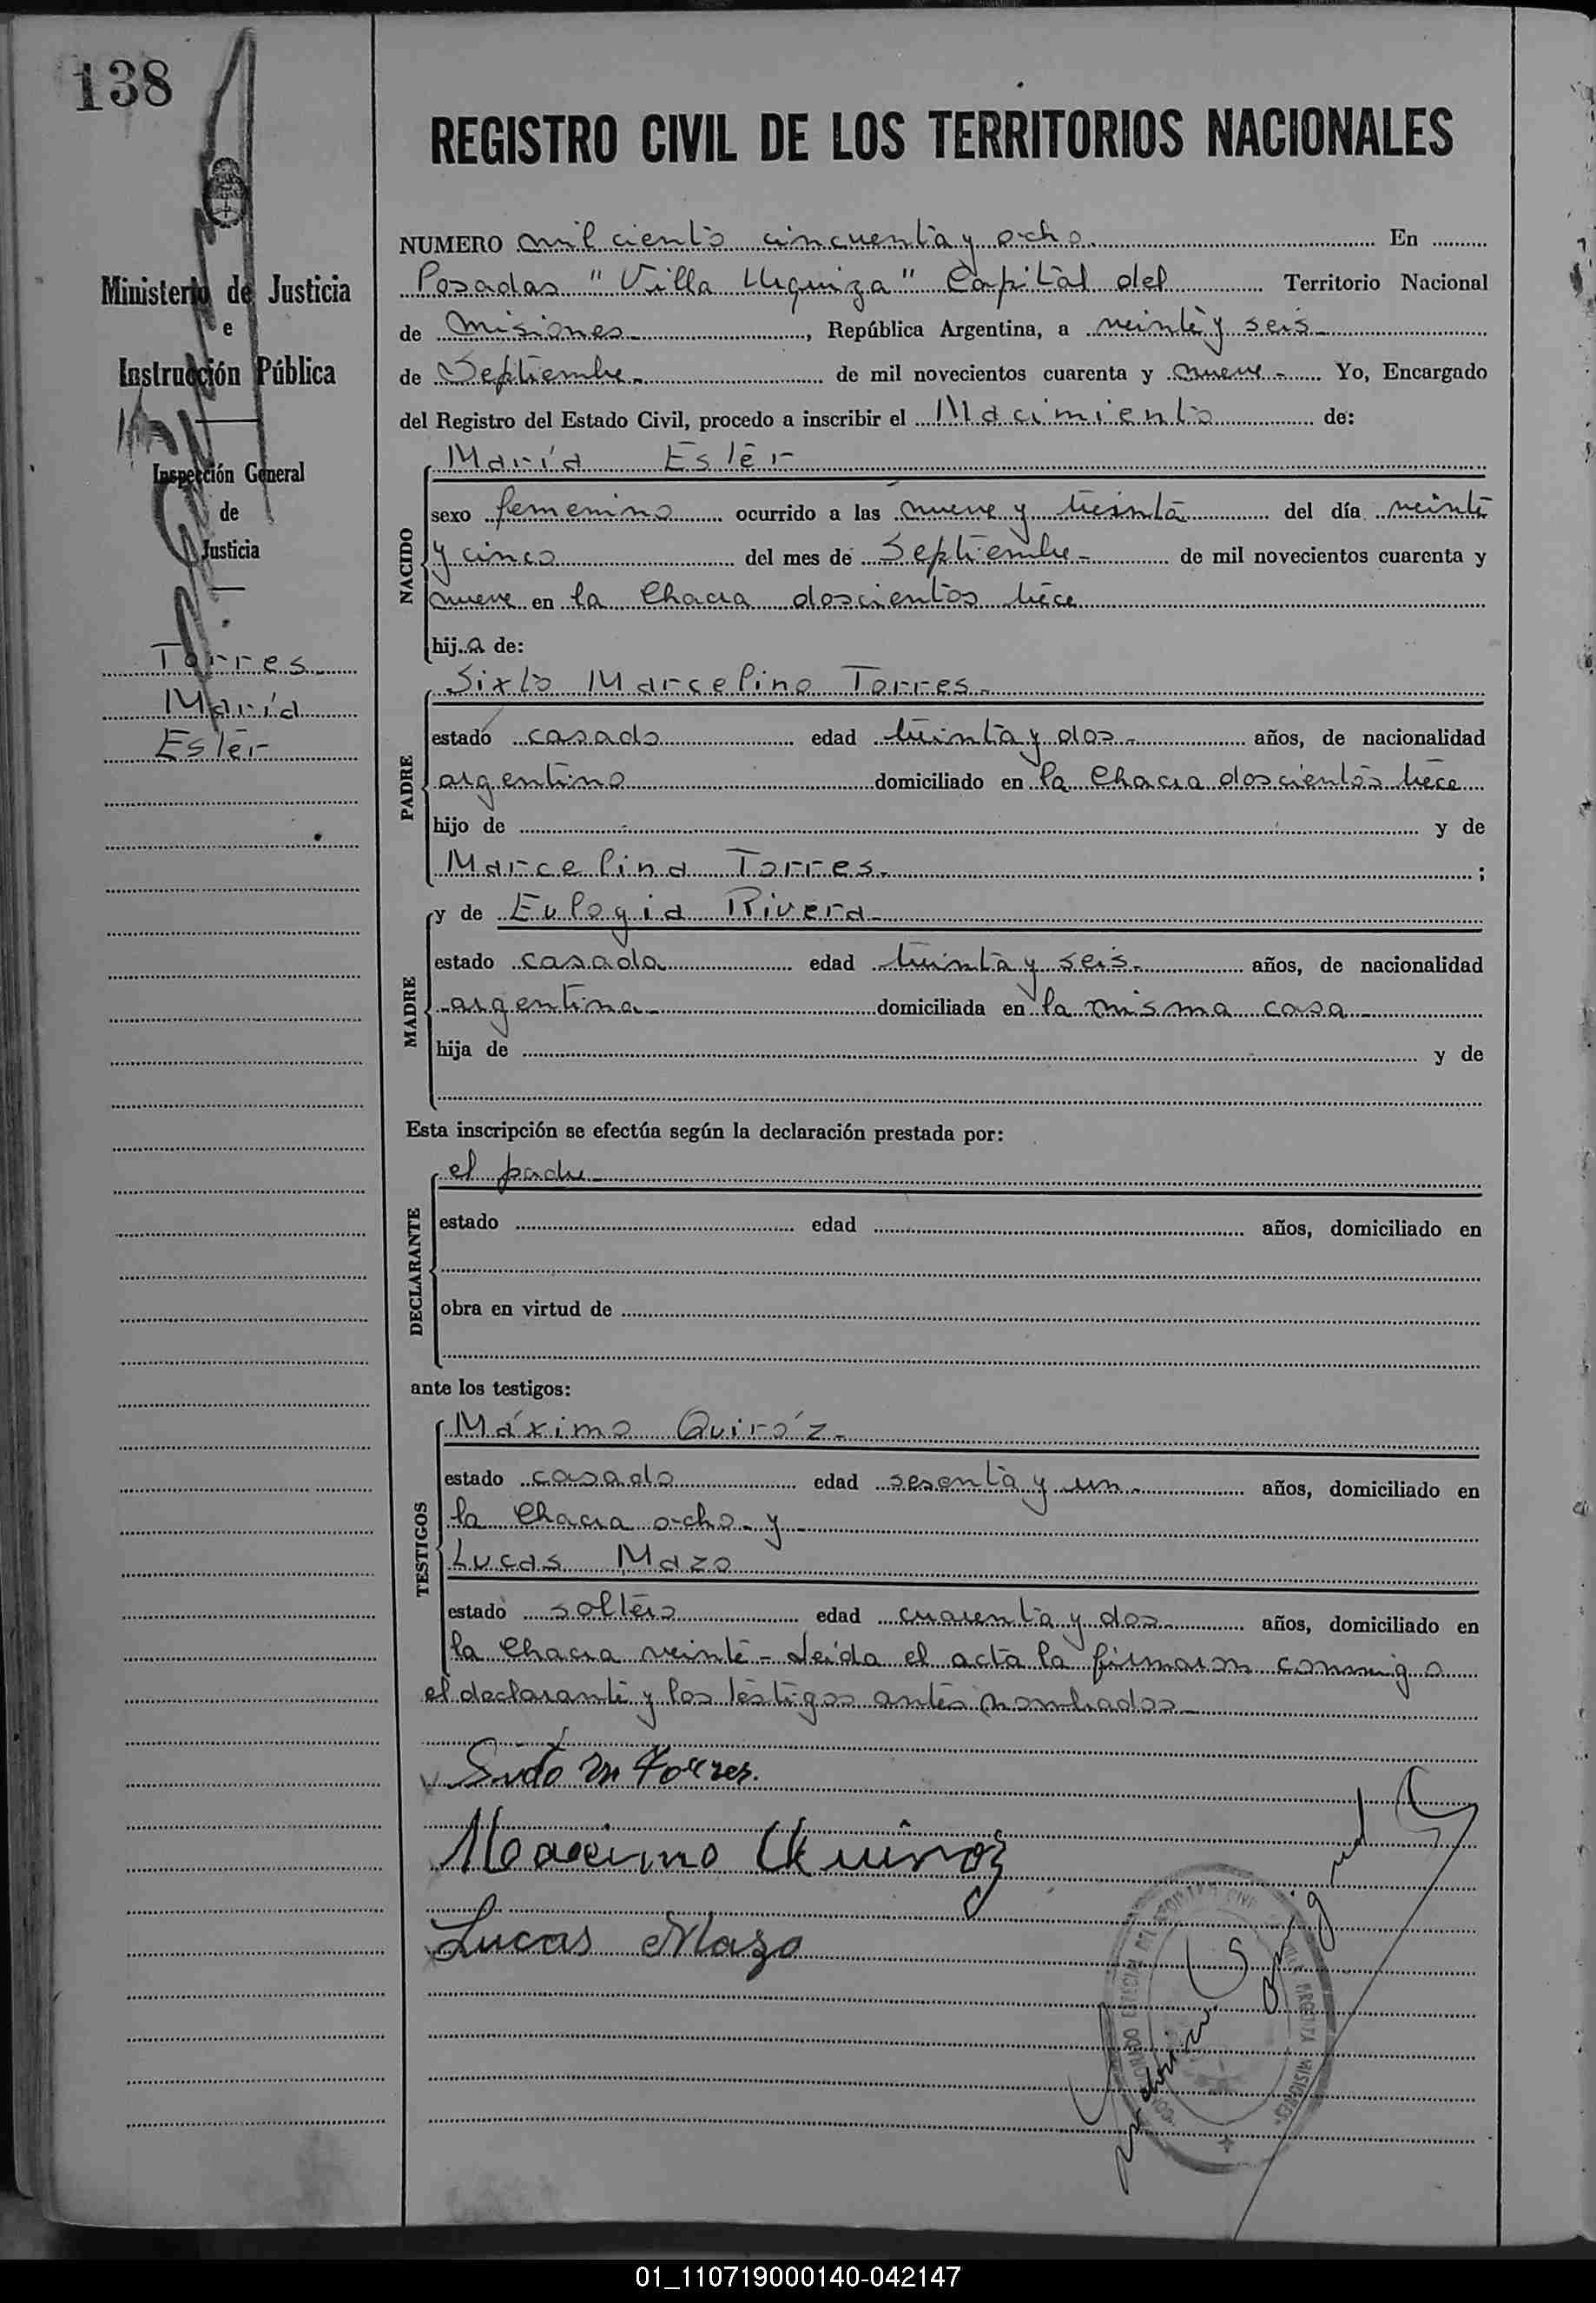 138
Ministerio de Justicia
e
Instrucción Pública
Inspección General
de
Justicia
Torres
María
Ester
REGISTRO CIVIL DE LOS TERRITORIOS NACIONALES
NUMERO mil ciento cincuenta y ocho. En
Posadas "Villa Urquiza" Capital del Territorio Nacional
de Misiones, República Argentina, a veinte y seis
de Septiembre. de mil novecientos cuarenta y nueve. Yo, Encargado
del Registro del Estado Civil, procedo a inscribir el Nacimiento de:
NACIDO
María Ester
sexo femenino ocurrido a las nueve y treinta del día veinte
y cinco del mes de Septiembre de mil novecientos cuarenta y
nueve en la Chacra doscientos trece
hija de:
PADRE
Sixto Marcelino Torres.
estado casado edad treinta y dos años, de nacionalidad
argentino domiciliado en la Chacra doscientos trece
hijo de y de
Marcelina Torres. ;
MADRE
y de Eulogia Rivera
estado casada edad treinta y seis. años, de nacionalidad
argentina domiciliada en la misma casa
hija de y de
Esta inscripción se efectúa según la declaración prestada por:
DECLARANTE
el padre
estado edad años, domiciliado en
obra en virtud de
ante los testigos:
TESTIGOS
Máximo Quiróz.
estado casado edad sesenta y un. años, domiciliado en
la Chacra ocho. y
Lucas Mazo
estado soltero edad cuarenta y dos años, domiciliado en
la Chacra veinte - Leída el acta la firmaron conmigo
el declarante y los testigos antes nombrados
Sixto M Torres.
Maximo Quiroz
Lucas Mazo
01_110719000140-042147